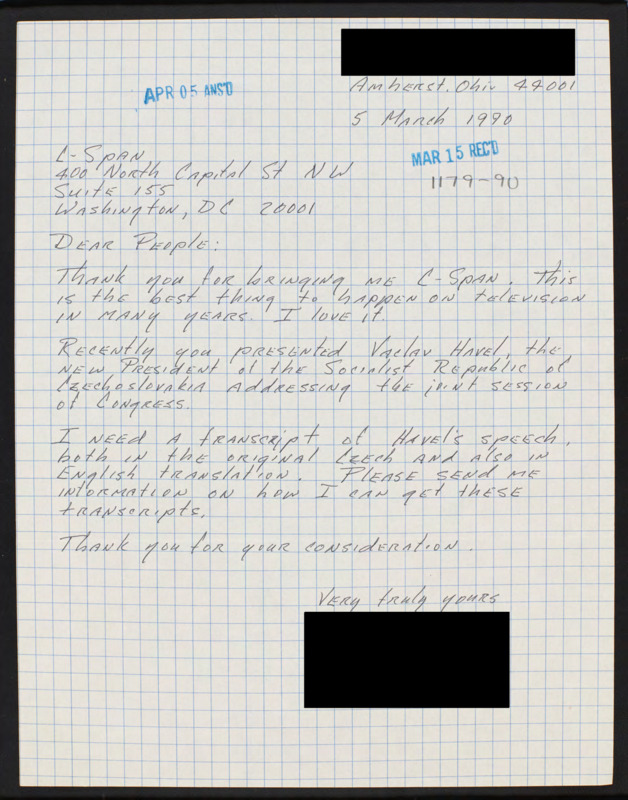 Amherst. Ohio 44001
APR 05 ANS'D
5 March 1990
MAR 15 REC'D
1179-90
C-SPAN
400 North Capital St NW
Suite 155
Washington, DC 20001
Dear People:
Thank you for bringing me C-SPAN. This
is the best thing to happen on television
in many years. I love it.
Recently you presented Vaclav Havel, the
new President of the Socialist Republic of
Czechoslovakia addressing the joint session
of Congress.
I need a transcript of Havel's speech,
both in the original Czech and also in
English translation. Please send me
information on how I can get these
transcripts.
Thank you for your consideration.
Very truly yours